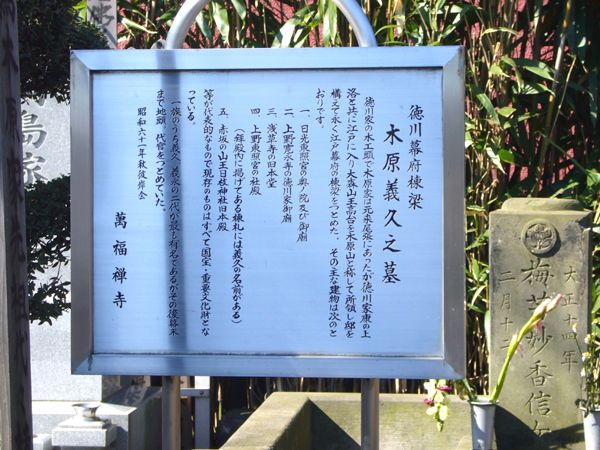 徳川幕府棟梁
木原義久之墓
徳川家の木工頭で木原家は元来尾張にあったが徳川家康の上
洛と共に江戸に入り大森山王高台を木原山と称して所領し邸を
構えて永く江戸幕府の棟梁をつとめた。その主な建物は次のと
おりです。
一、日光東照宮の奥ノ院及び御廟
二、上野寛永寺の徳川家御廟
三、浅草寺の旧本堂
四、上野東照宮の社殿
(保殿内に掲げてある棟札には義久の名前がある)
五、赤坂の山王日枝神社旧本殿
等が代表的なもので現存のものはすべて国宝・重要文化財とな
っている。
一族のうち義久、義永の二代が最も有名であるがその後幕末
まで地頭、代官をつとめていた。
昭和六十一年秋彼岸会
萬福禅寺
大正十四年
梅芳妙香信
二月十二